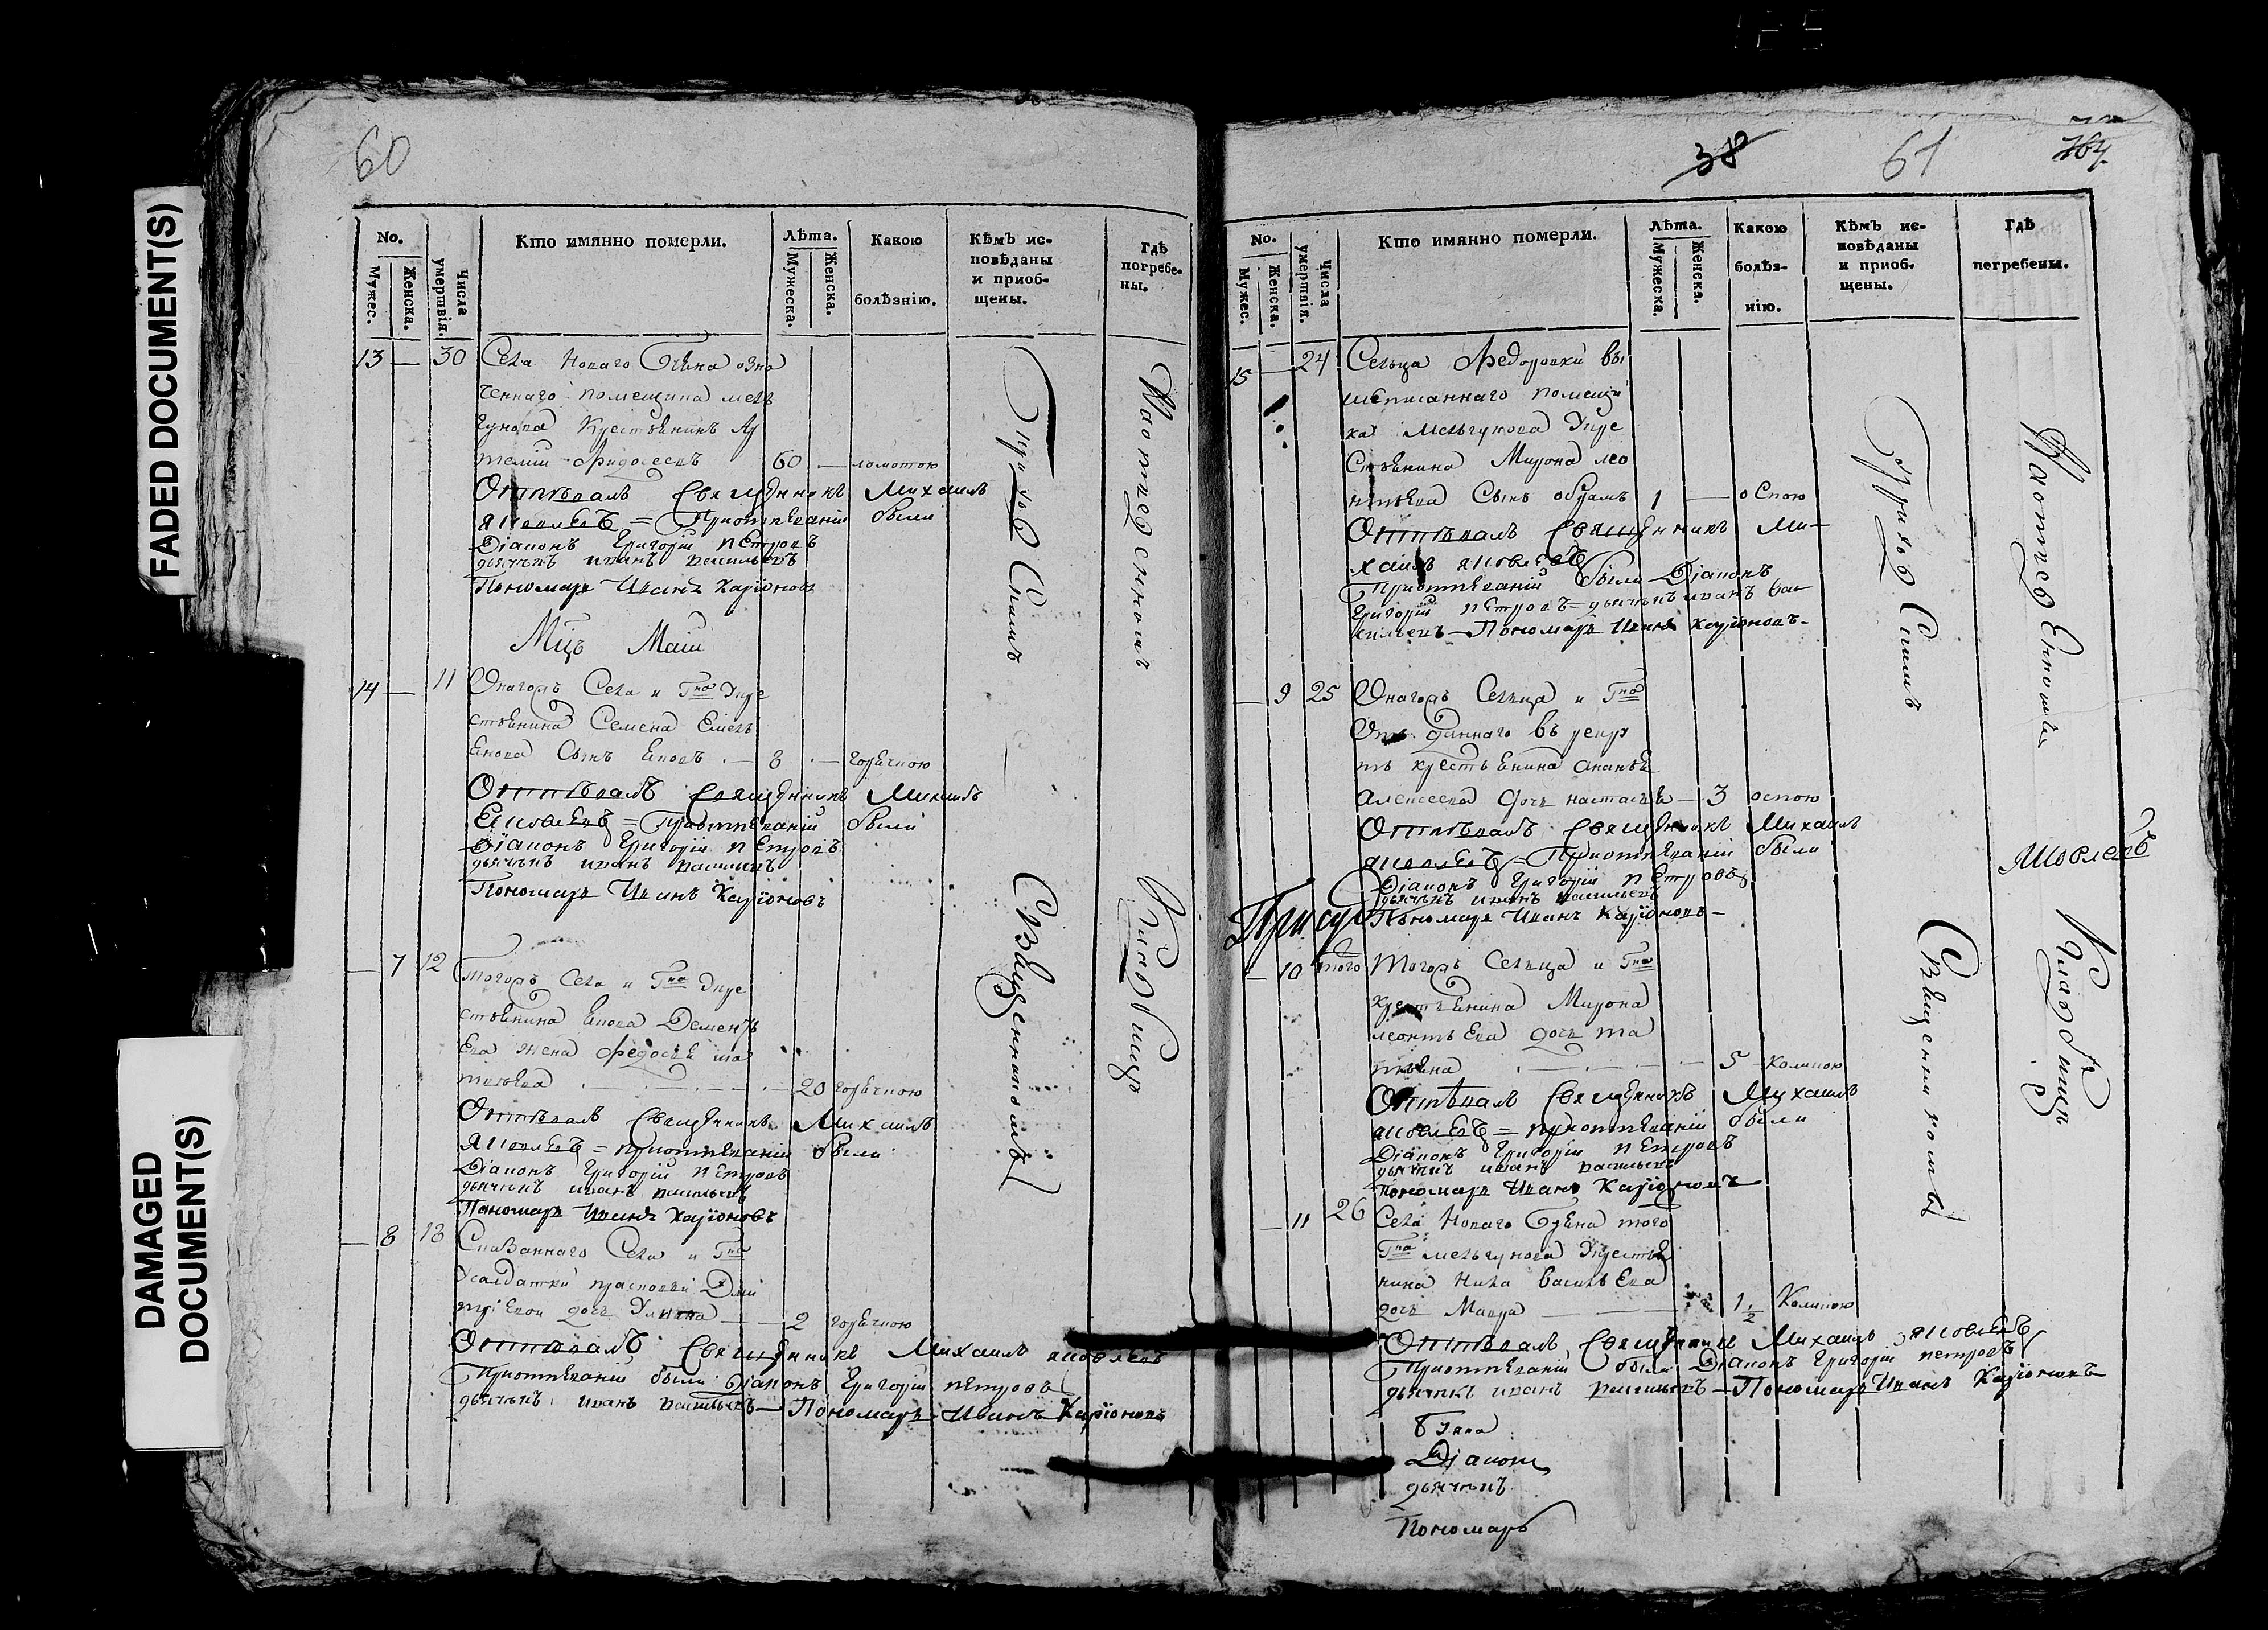 FADED DOCUMENT(S)
DAMAGED
DOCUMENT(S)
60
No.
Мужес.
Женска.
Числа умертвія.
Кто имянно померли.
Лѣта.
Мужеска.
Женска.
Какою
болѣзнію.
Кѣмъ ис-
повѣданы
и приоб-
щены.
Гдѣ
погребе-
ны.
13 — 30 Села Новаго означеннаго
помещика мель
гунова крестьянинъ
60 — ломотою
Отпѣвалъ Священникъ Михаилъ
Яковлевъ = При отпѣваніи были
Діаконъ Григорій Петровъ
дьячекъ иванъ васильевъ
Пономарь Иванъ Каріоновъ
Мцъ Маій
14 — 11 Онагожъ Села и Гна кре
стьянина Семена Емель
янова Сынъ Яковъ — 8 — горячкою
Отпѣвалъ Священникъ Михаилъ
Яковлевъ = При отпѣваніи были
Діаконъ Григорій Петровъ
дьячекъ иванъ васильевъ
Пономарь Иванъ Каріоновъ
— 7 12 тогожъ Села и Гна кре
стьянина Якова Дементь
ева жена Федосья
— 20 горячкою
Отпѣвалъ Священникъ Михаилъ
Яковлевъ = при отпѣваніи были
Діаконъ Григорій Петровъ
дьячекъ иванъ васильевъ
Пономарь Иванъ Каріоновъ
— 8 13 Сказаннаго Села и Гна
салдатки прасковьи Дми
тріевой дочь — 2 горячкою
Отпѣвалъ Священникъ Михаилъ Яковлевъ
При отпѣваніи были Діаконъ Григорій Петровъ
дьячекъ иванъ васильевъ — Пономарь Иванъ Каріоновъ
Приходскимъ
Священникомъ
На отведенномъ
Кладбищѣ
38
61
No.
Мужес.
Женска.
Числа умертвія.
Кто имянно померли.
Лѣта.
Мужеска.
Женска.
Какою
болѣз-
нію.
Кѣмъ ис-
повѣданы
и приоб-
щены.
Гдѣ
погребены.
15 — 24 Сельца Федоровки вы
шеписаннаго помещи
ка Мельгунова кре
стьянина Мирона лео
нтьева Сынъ 1 — оспою
Отпѣвалъ Священникъ Ми-
хаилъ Яковлевъ
При отпѣваніи были Діаконъ
Григорій Петровъ = дьячекъ иванъ ва-
сильевъ — Пономарь Иванъ Каріоновъ —
— 9 25 Онагожъ Сельца и Гна
Отъ даннаго въ рекру
ты крестьянина ананьи
алексеева дочь настасья — 3 оспою
Отпѣвалъ Священникъ Михаилъ
Яковлевъ = При отпѣваніи были
Діаконъ Григорій Петровъ
дьячекъ иванъ васильевъ
Пономарь Иванъ Каріоновъ —
— 10 того Тогожъ Сельца и Гна
крестьянина Мирона
леонтьева дочь та
тьяна — 5
Отпѣвалъ Священникъ Михаилъ
Яковлевъ = при отпѣваніи были
Діаконъ Григорій Петровъ
дьячекъ иванъ васильевъ
Пономарь Иванъ Каріоновъ
— 11 26 Села Новаго того
Гна мельгунова крестья
нина васильева
дочь Мавра — 1 1/2
Отпѣвалъ Священникъ Михаилъ Яковлевъ
При отпѣваніи были Діаконъ Григорій Петровъ
дьячекъ иванъ васильевъ — Пономарь Иванъ Каріоновъ
Діаконъ
дьячекъ
Пономарь
Приход Скимъ
Священникомъ
На отведенномъ
Яковлевъ
Кладбищѣ